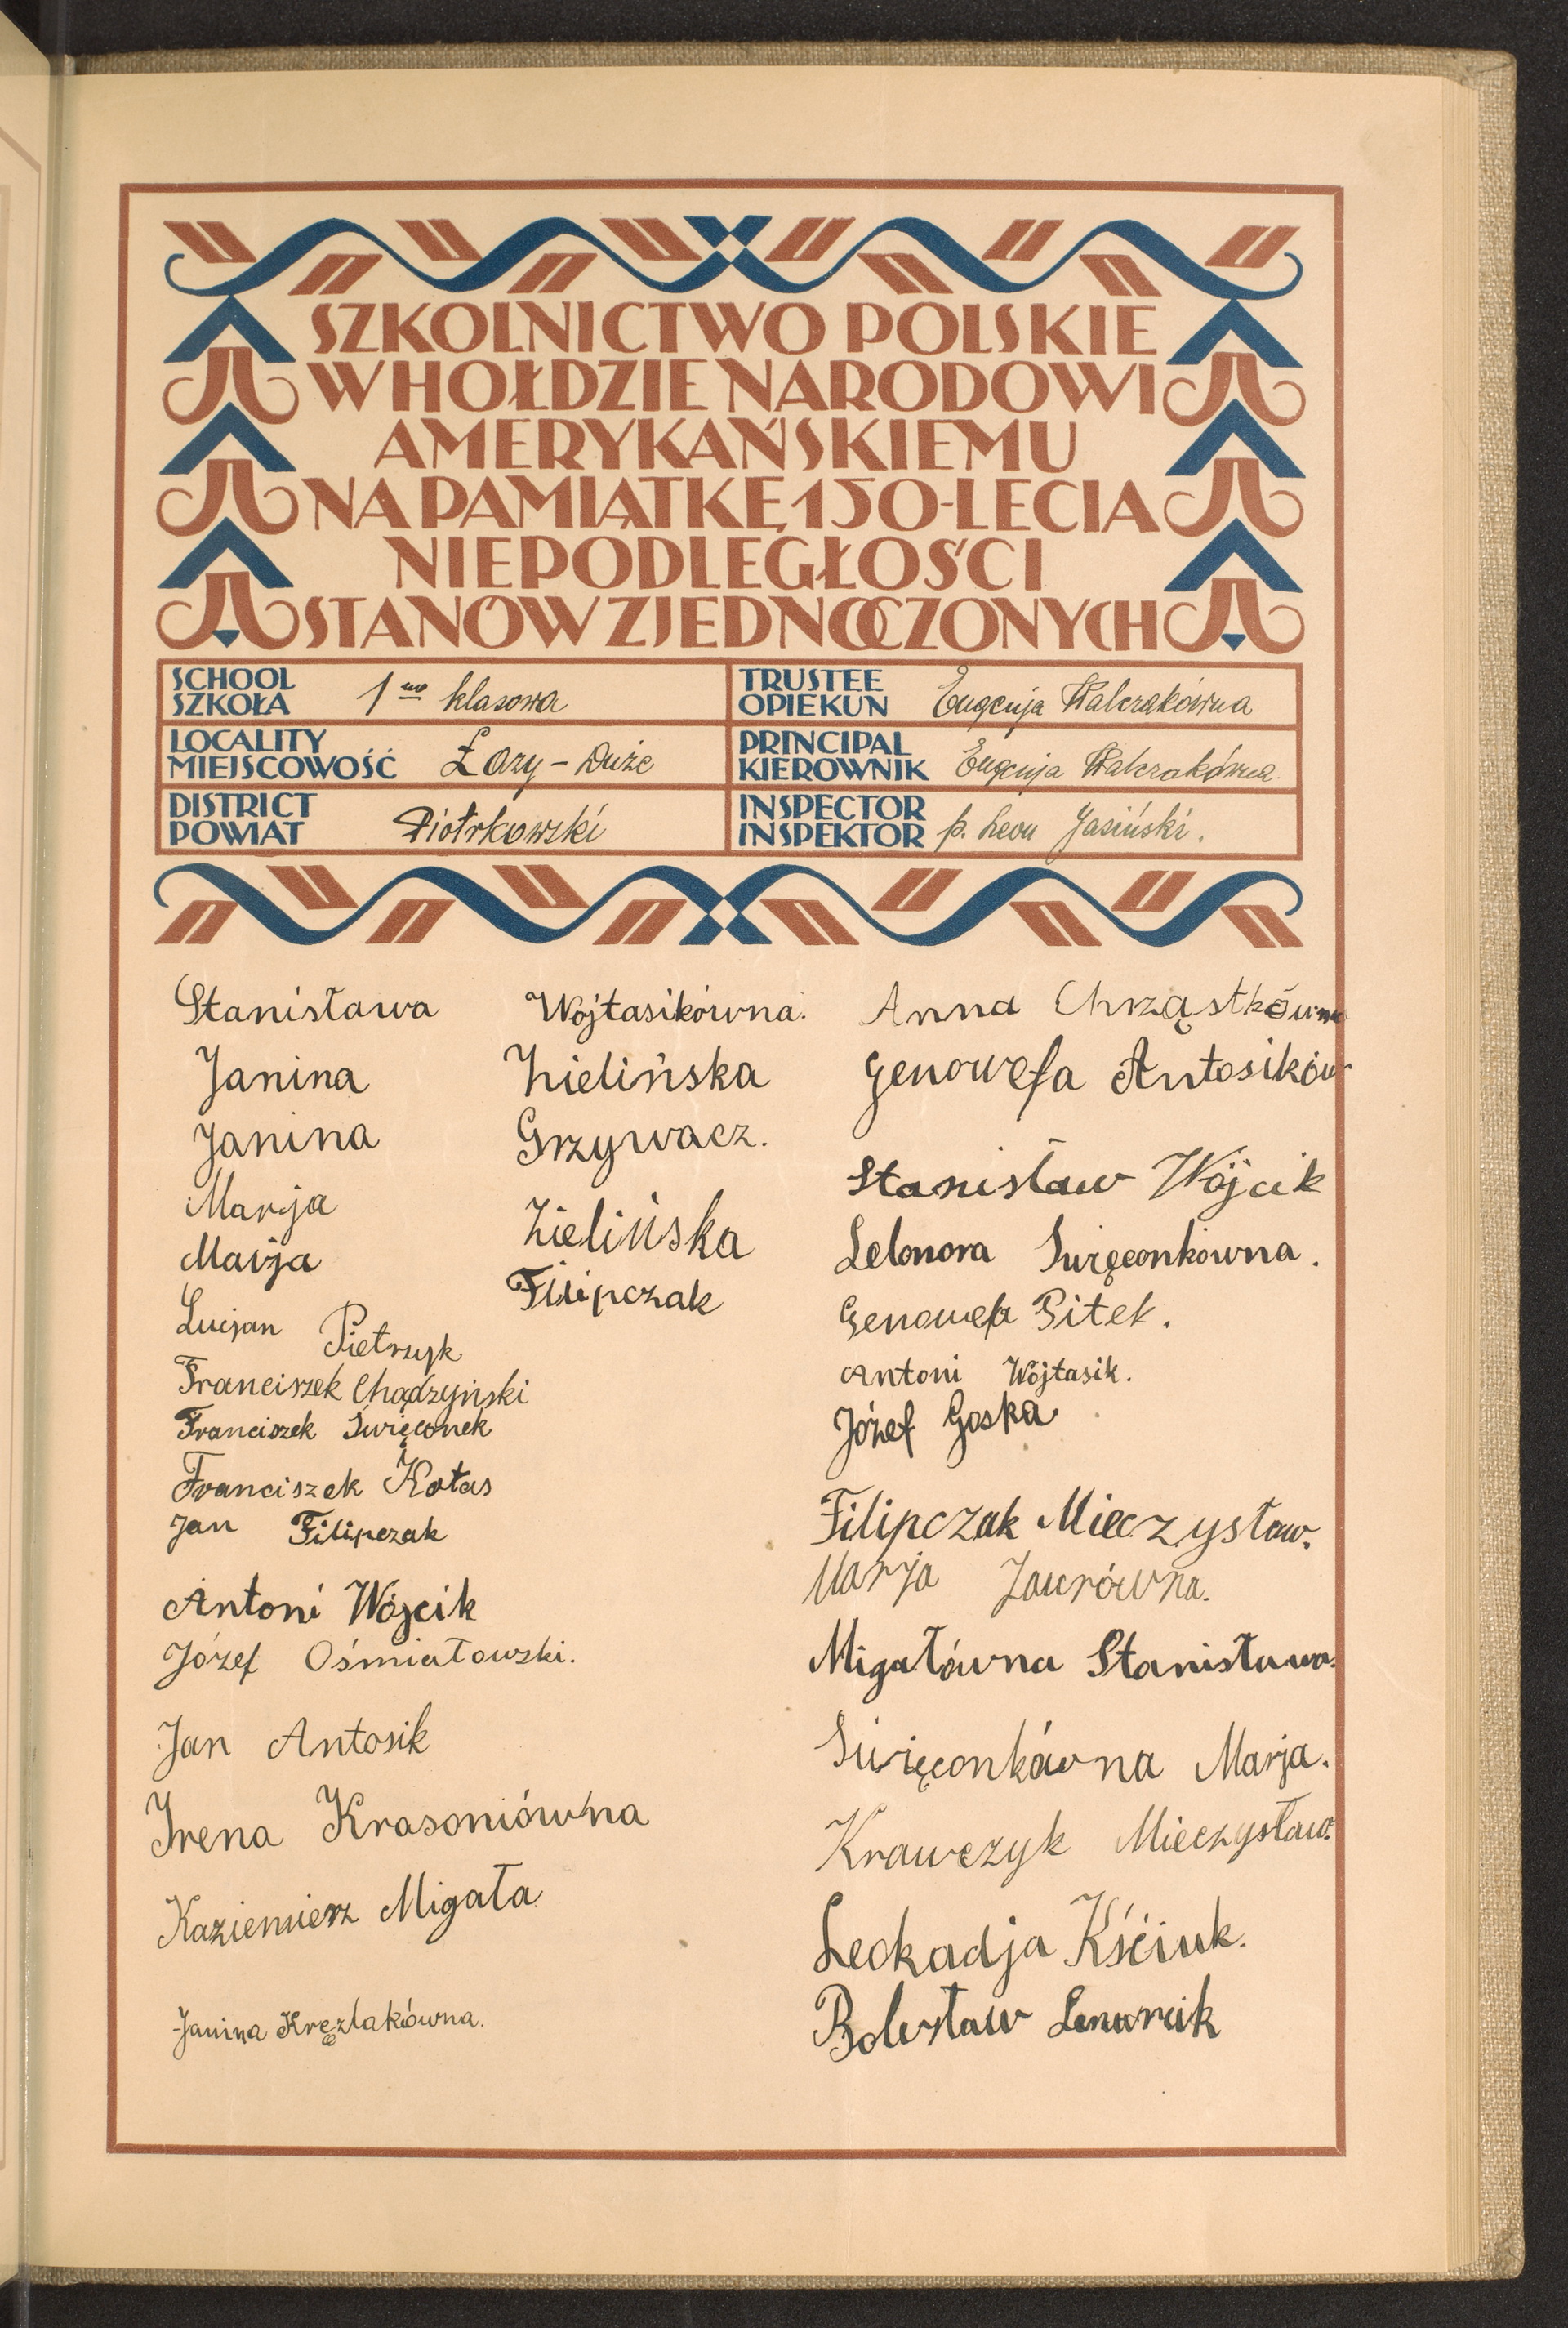 SZKOLNICTWO POLSKIE
W HOŁDZIE NARODOWI
AMERYKAŃSKIEMU
NA PAMIĄTKĘ 150-LECIA
NIEPODLEGŁOŚCI
STANÓW ZJEDNOCZONYCH
SCHOOL
SZKOŁA 1 wo klasowa
TRUSTEE
OPIEKUN Eugenja Walczakówna
LOCALITY
MIEJSCOWOŚĆ Łazy - Duże
PRINCIPAL
KIEROWNIK Eugenja Walczakówna.
DISTRICT
POWIAT Piotrkowski
INSPECTOR
INSPEKTOR p. Leon Jasiński.
Stanisława Wojtasikówna.
Janina Zielińska
Janina Grzywacz.
Marja Zielińska
Marja Filipczak
Lucjan Pietrzyk
Franciszek Chądzyński
Franciszek Święconek
Franciszek Kołas
Jan Filipczak
Antoni Wójcik
Józef Ośmiałowski.
Jan Antosik
Irena Krasoniówna
Kazimierz Migała
Janina Kręzlakówna.
Anna Chrząstkówna
Genowefa Antosików
Stanisław Wójcik
Leonora Święconkówna.
Genowefa Pitek.
Antoni Wójtasik.
Józef Goska
Filipczak Mieczysław.
Marja Zaurówna.
Migałówna Stanisława.
Święconkówna Marja.
Krawczyk Mieczysław.
Leokadja Kściuk.
Bolesław